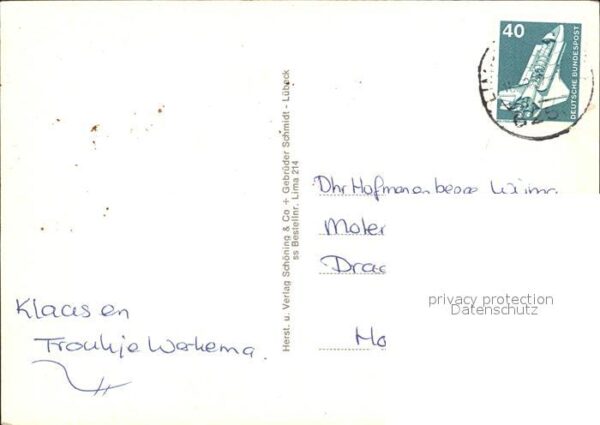 40
DEUTSCHE BUNDESPOST
Herst. u. Verlag Schöning & Co + Gebrüder Schmidt - Lübeck
ss Bestellnr. Lima 214
Dhr Hofman en
Moler
Drac
Ho
privacy protection
Datenschutz
Klaas en
Froukje Werkema.